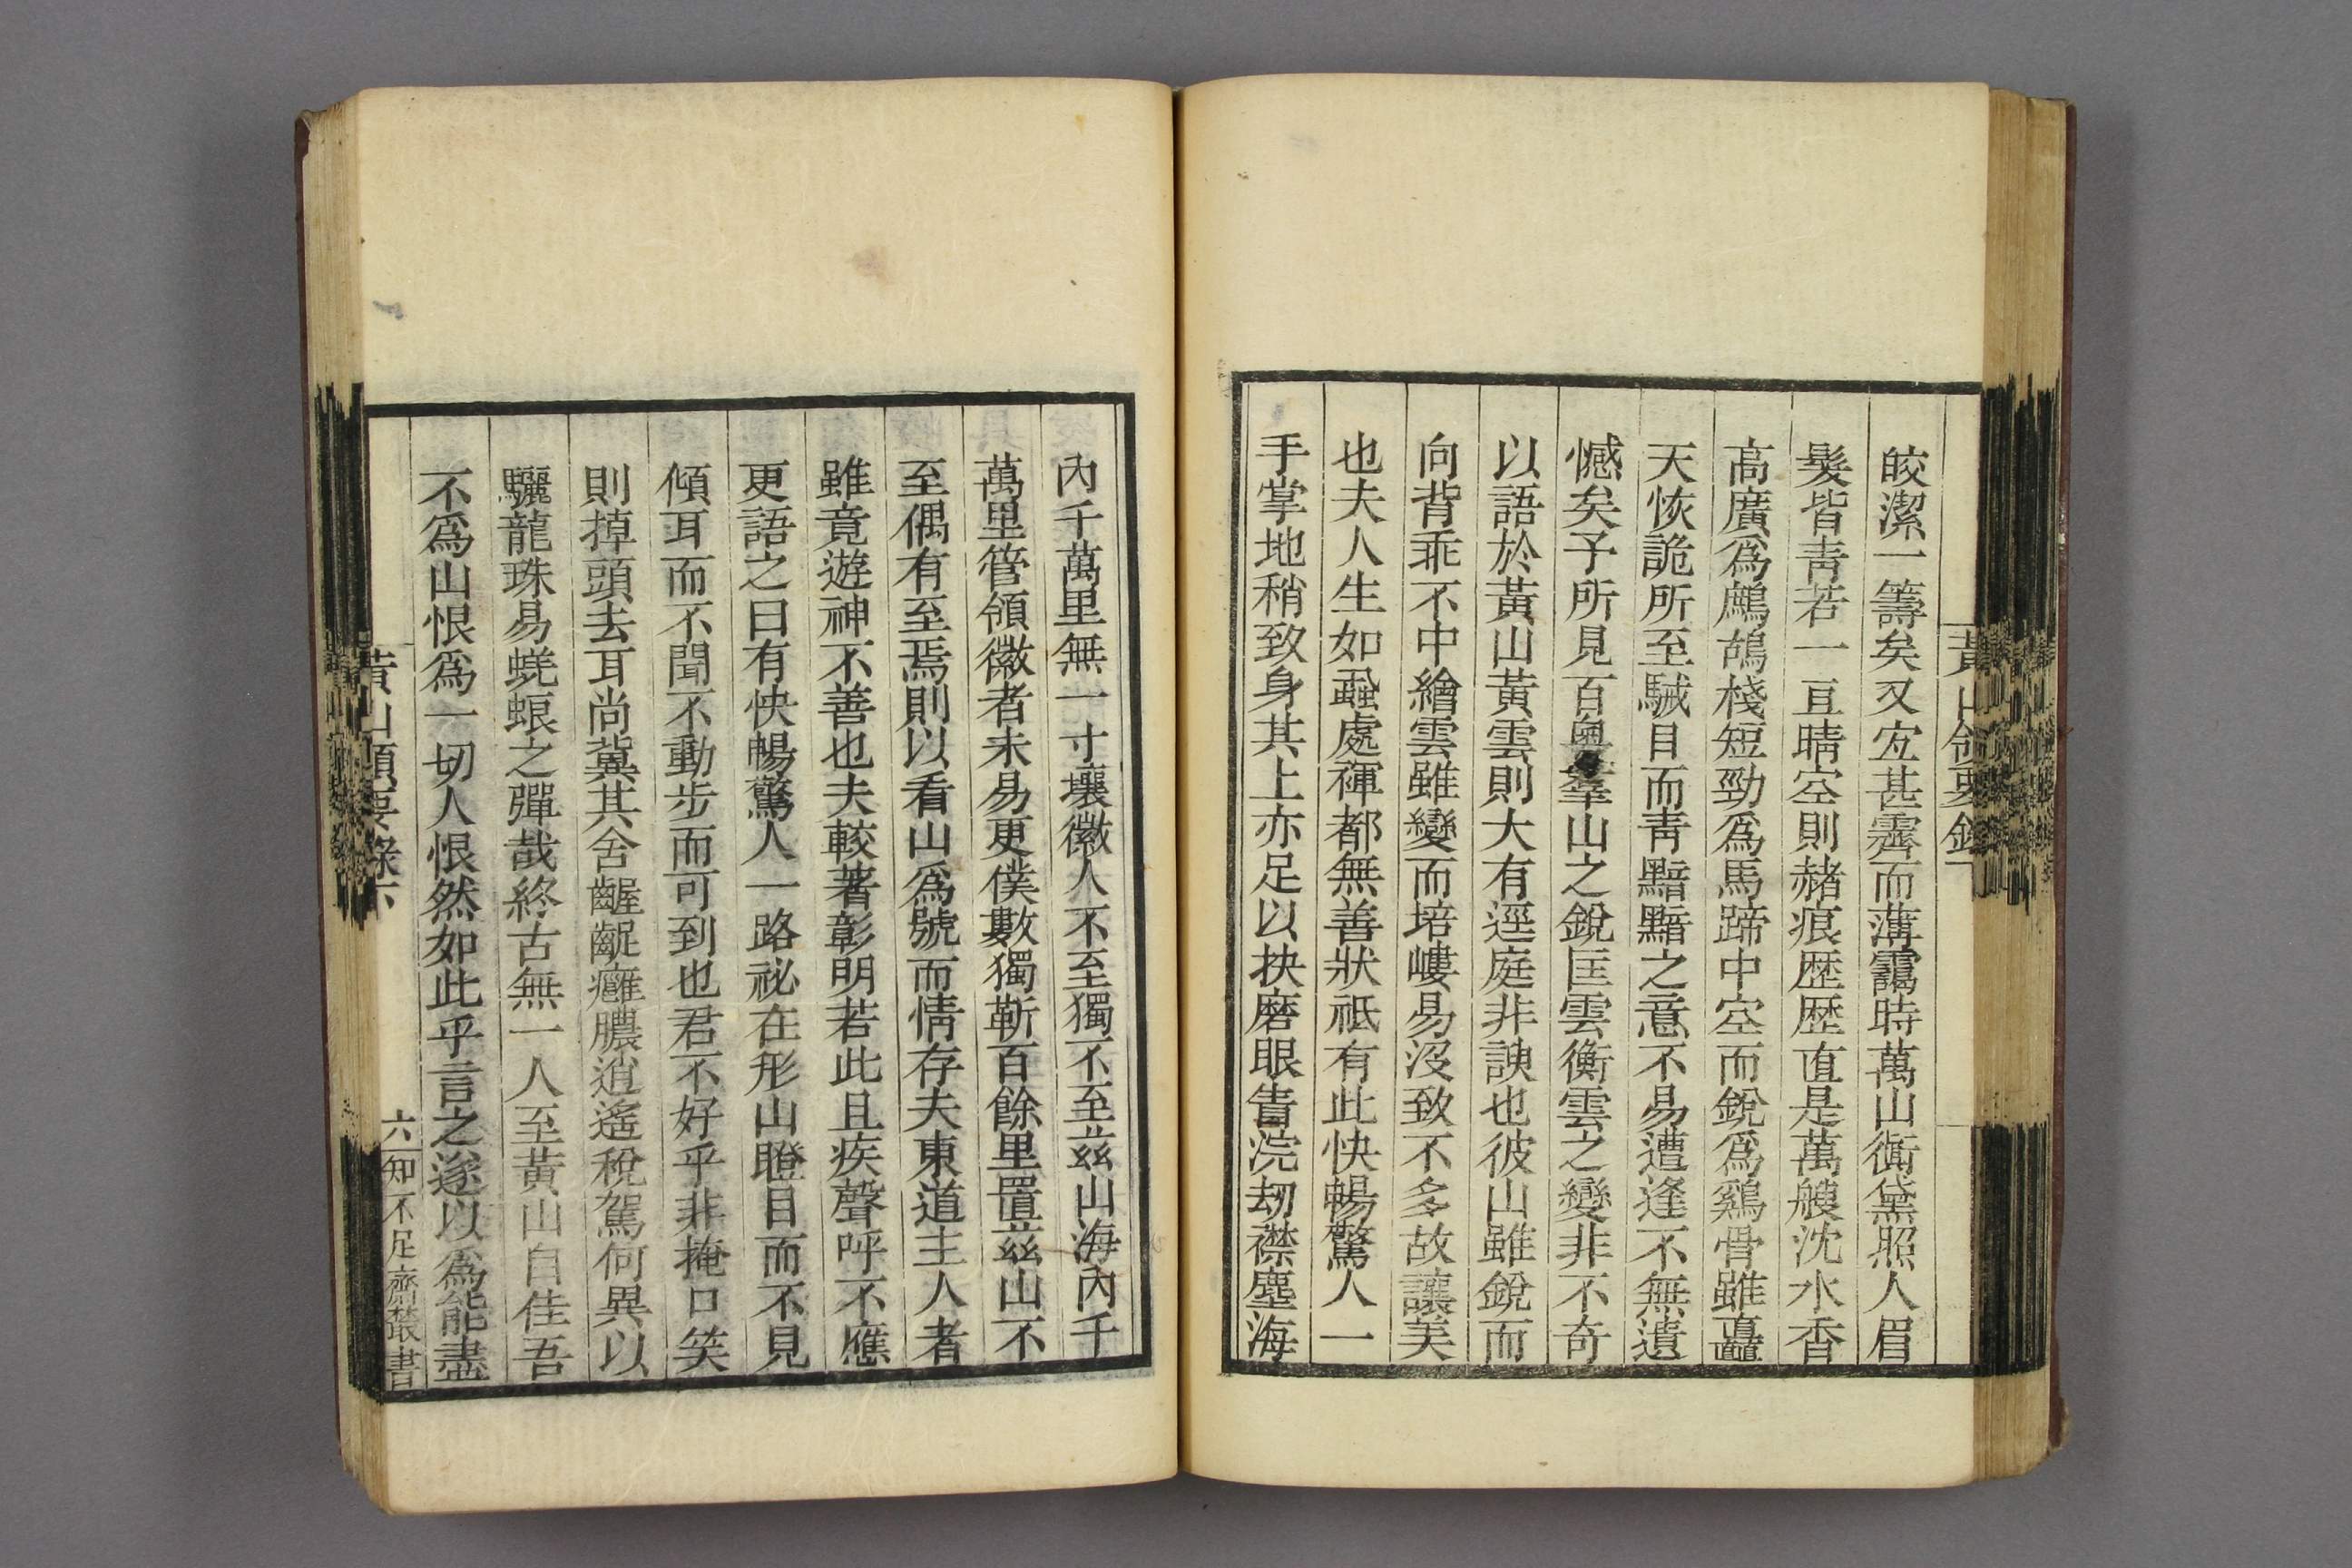 皎潔一籌矣又宐甚霽而薄靄時萬山衠黛照人眉
髮皆靑若一亘晴空則赭痕歷歷直是萬艘沈水香
高廣爲鷓鴣棧短勁爲馬蹄中空而銳爲鷄骨雖矗
天恢詭所至駴目而靑黯黯之意不易遭逢不無遺
憾矣予所見百粵羣山之銳匡雲衡雲之變非不奇
以語於黃山黃雲則大有逕庭非諛也彼山雖銳而
向背乖不中繪雲雖變而培嶁易沒致不多故讓美
也夫人生如蝨處褌都無善狀祇有此快暢驚人一
手掌地稍致身其上亦足以抉磨眼眚浣刼襟塵海
內千萬里無一寸壤徽人不至獨不至茲山海內千
萬里管領徽者未易更僕數獨靳百餘里置茲山不
至偶有至焉則以看山爲號而情存夫東道主人者
雖竟遊神不善也夫較著彰明若此且疾聲呼不應
更語之曰有快暢驚人一路祕在形山瞪目而不見
傾耳而不聞不動步而可到也君不好乎非掩口笑
則掉頭去耳尚冀其舍齷齪癰膿逍遙稅駕何異以
驪龍珠易蜣蜋之彈哉終古無一人至黃山自佳吾
不爲山恨爲一切人恨然如此乎言之遂以爲能盡
黃山領要錄下
六
知不足齋叢書